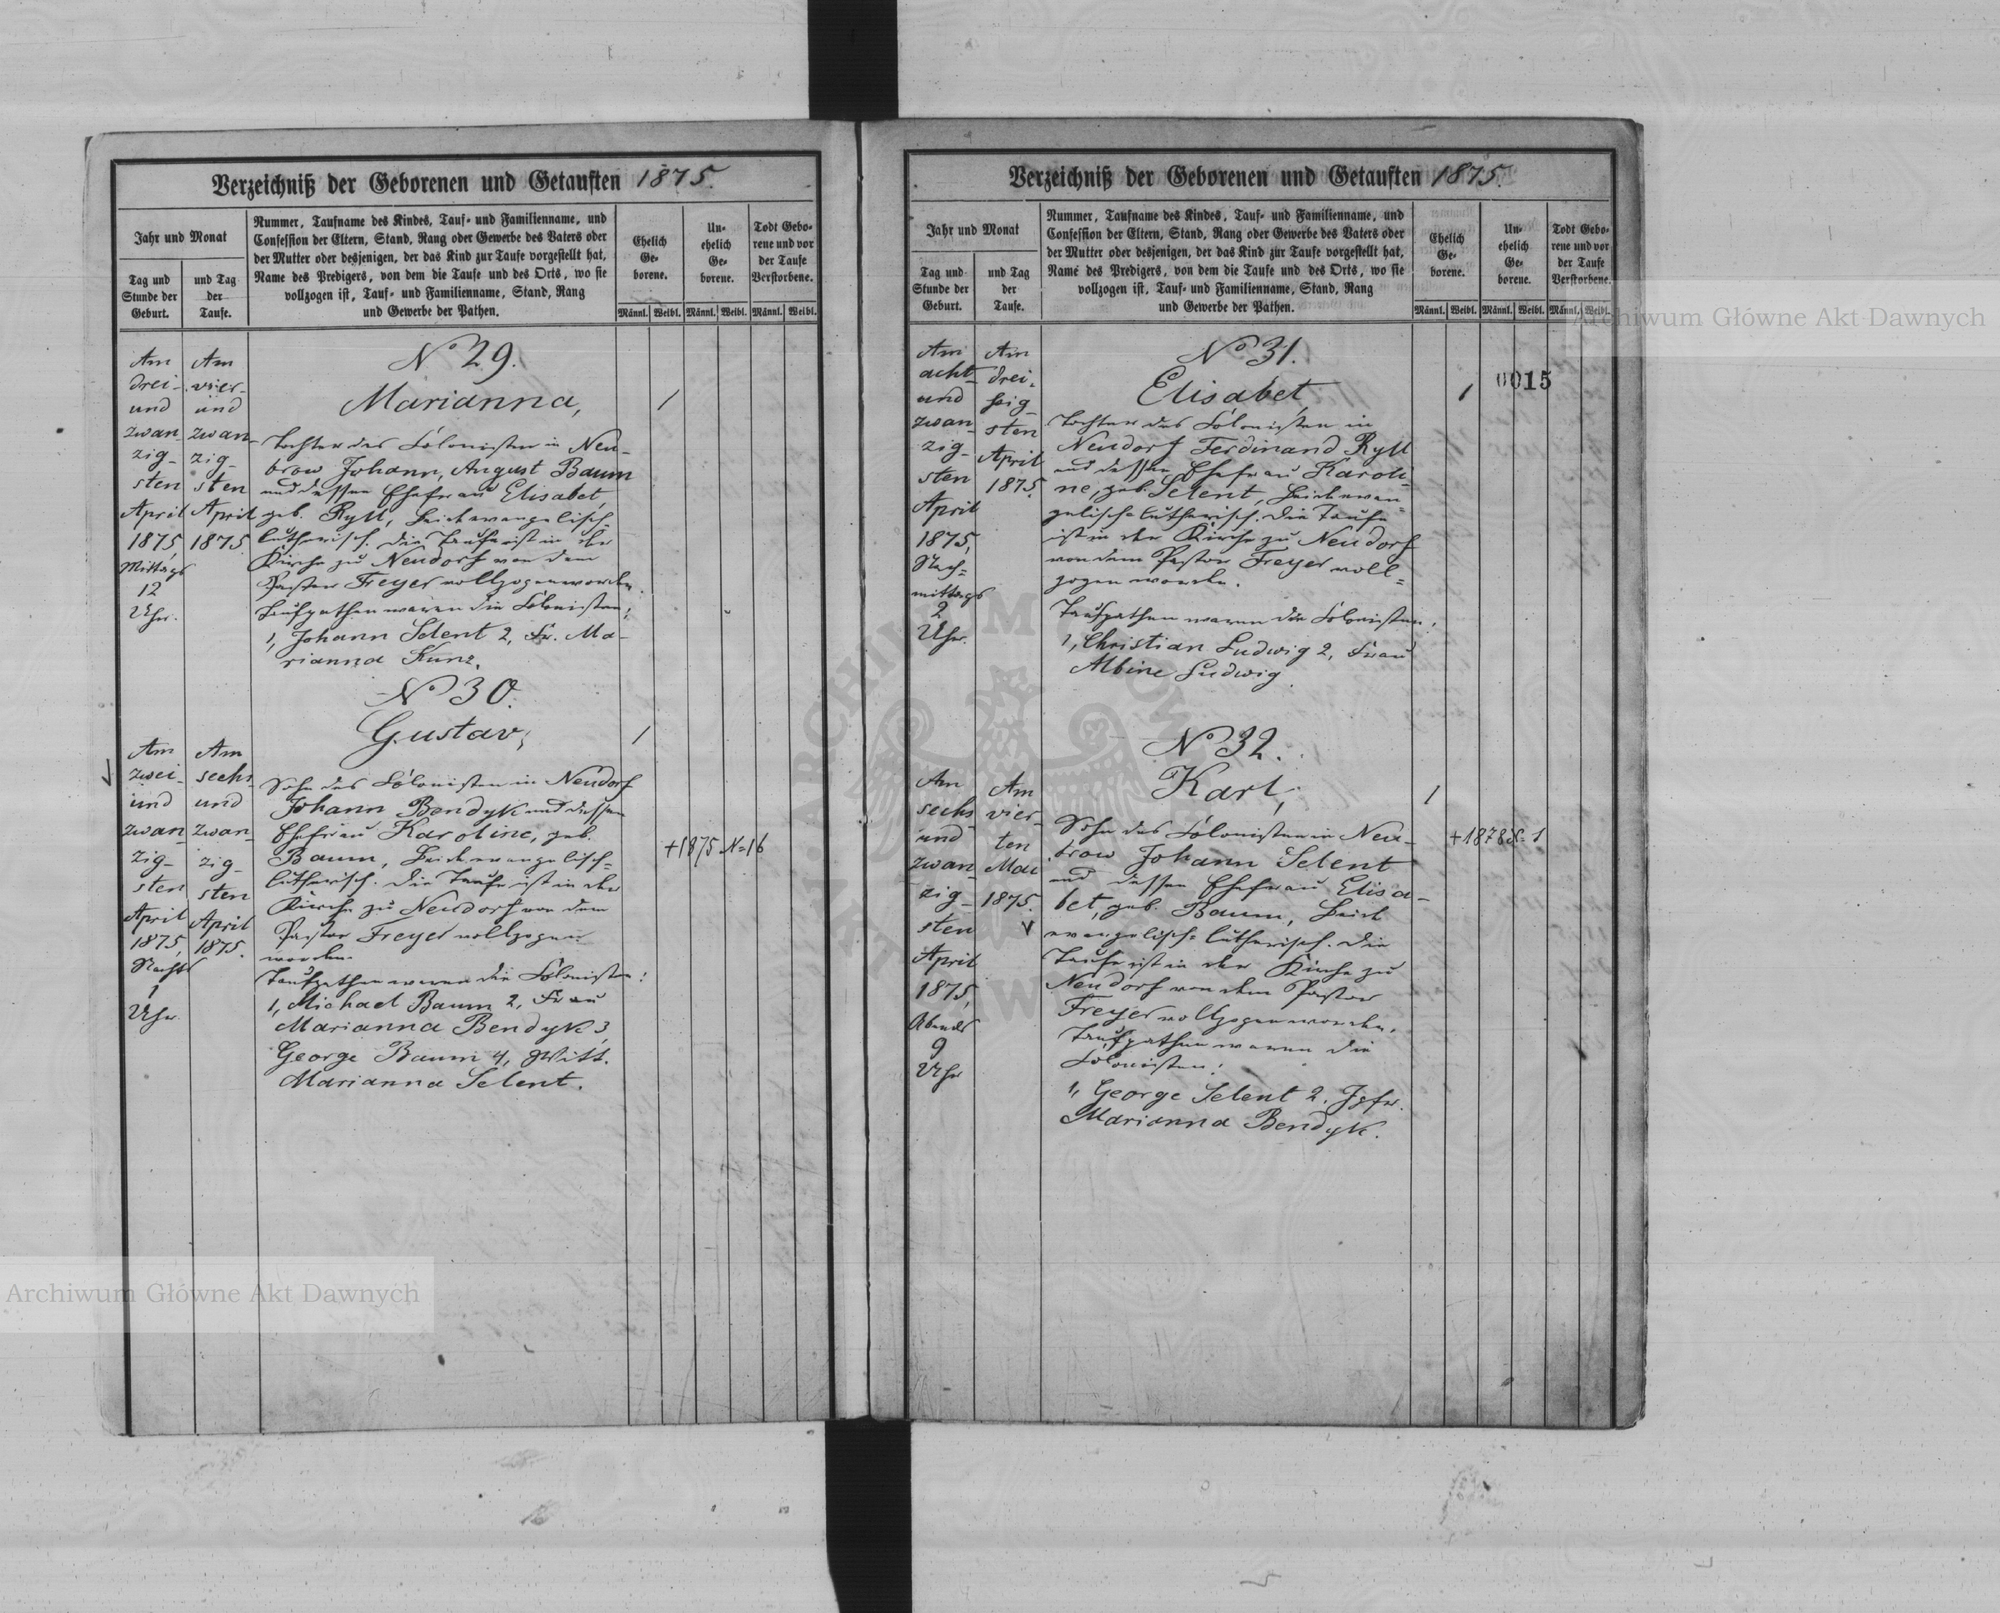 Verzeichniß der Geborenen und Getauften 1875.
Jahr und Monat
Tag und
Stunde der
Geburt.
und Tag
der
Taufe.
Nummer, Taufname des Kindes, Tauf- und Familienname, und
Confession der Eltern, Stand, Rang oder Gewerbe des Vaters oder
der Mutter oder desjenigen, der das Kind zur Taufe vorgestellt hat,
Name des Predigers, von dem die Taufe und des Orts, wo sie
vollzogen ist, Tauf- und Familienname, Stand, Rang
und Gewerbe der Pathen.
Ehelich
Ge-
borene.
Un-
ehelich
Ge-
borene.
Todt Gebo-
rene und vor
der Taufe
Verstorbene.
Männl. Weibl. Männl. Weibl. Männl. Weibl.
Am
drei-
und
zwan-
zig-
sten
April
1875,
Mittags
12
Uhr.
Am
vier-
und
zwan-
zig-
sten
April
1875
No 29.
Marianna,
Tochter des Colonisten in Neu-
brow Johann, August Baum
und dessen Ehefrau Elisabet,
geb. Ryll, Beide evangelisch-
lutherisch. Die Taufe ist in der
Kirche zu Neudorf von dem
Pastor Freyer vollzogen worden.
Taufpathen waren die Colonisten:
1, Johann Selent 2, Fr. Ma-
rianna Kunz.
/
Am
zwei-
und
zwan-
zig-
sten
April
1875,
Nachts
1
Uhr
Am
sechs
und
zwan-
zig-
sten
April
1875.
No 30.
Gustav,
Sohn des Colonisten in Neudorf
Johann Bendyk und dessen
Ehefrau Karoline, geb.
Baum, Beide evangelisch-
lutherisch. Die Taufe ist in der
Kirche zu Neudorf von dem
Pastor Freyer vollzogen
worden.
Taufpathen waren die Colonisten:
1, Michael Baum 2, Frau
Marianna Bendyk 3,
George Baum 4, Witt.
Marianna Selent.
/
+1875 N=16
Verzeichniß der Geborenen und Getauften 1875.
Jahr und Monat
Tag und
Stunde der
Geburt.
und Tag
der
Taufe.
Nummer, Taufname des Kindes, Tauf- und Familienname, und
Confession der Eltern, Stand, Rang oder Gewerbe des Vaters oder
der Mutter oder desjenigen, der das Kind zur Taufe vorgestellt hat,
Name des Predigers, von dem die Taufe und des Orts, wo sie
vollzogen ist, Tauf- und Familienname, Stand, Rang
und Gewerbe der Pathen.
Ehelich
Ge-
borene.
Un-
ehelich
Ge-
borene.
Todt Gebo-
rene und vor
der Taufe
Verstorbene.
Männl. Weibl. Männl. Weibl. Männl. Weibl.
Archiwum Główne Akt Dawnych
0015
Am
acht-
und
zwan-
zig-
sten
April
1875,
Nach=
mittags
2
Uhr.
Am
drei-
ßig-
sten
April
1875.
No 31.
Elisabet,
Tochter des Colonisten in
Neudorf Ferdinand Ryll
und dessen Ehefrau Karoli-
ne, geb. Selent, Beide evan=
gelisch-lutherisch. Die Taufe
ist in der Kirche zu Neudorf
von dem Pastor Freyer voll=
zogen worden.
Taufpathen waren die Colonisten:
1, Christian Ludwig 2, Frau
Albine Ludwig.
/
Am
sechs
und
zwan-
zig-
sten
April
1875,
Abends
9
Uhr
Am
vier-
ten
Mai
1875.
No 32.
Karl,
Sohn des Colonisten in Neu-
brow Johann Selent
und dessen Ehefrau Elisa-
bet, geb. Baum, Beide
evangelisch-lutherisch. Die
Taufe ist in der Kirche zu
Neudorf von dem Pastor
Freyer vollzogen worden.
Taufpathen waren die
Colonisten:
1, George Selent 2. Jgfr.
Marianna Bendyk.
/
+1878 N-1
Archiwum Główne Akt Dawnych